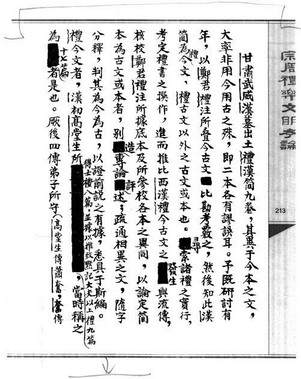 甘肅武威漢墓出土禮漢簡九卷,其異于今本之文,
大率非用今用古之殊,即二本各有譌誤耳。予既研討有
年,以鄭君禮注所疊今古文比勘考覈之,然後知此漢
簡為今文,禮古文以外之古文或本也。尋諸禮之實行,
考定禮書之撰作,進而推比西漢禮今古文之發生與流傳,
核校鄭君禮注所據底本及所參校各本之異同,以論定簡
本為古文或本者,別造專論詳述;疏通相異之文,隨字
分釋,判其為今為古,以證前說之有據,悉具于斯編。
禮今文者,漢初高堂生所
傳士禮十七篇
當時稱之
為
者是也。厥後四傳弟子所守
高堂生傳蕭奮,奮傳
宗周禮樂文明考論
213